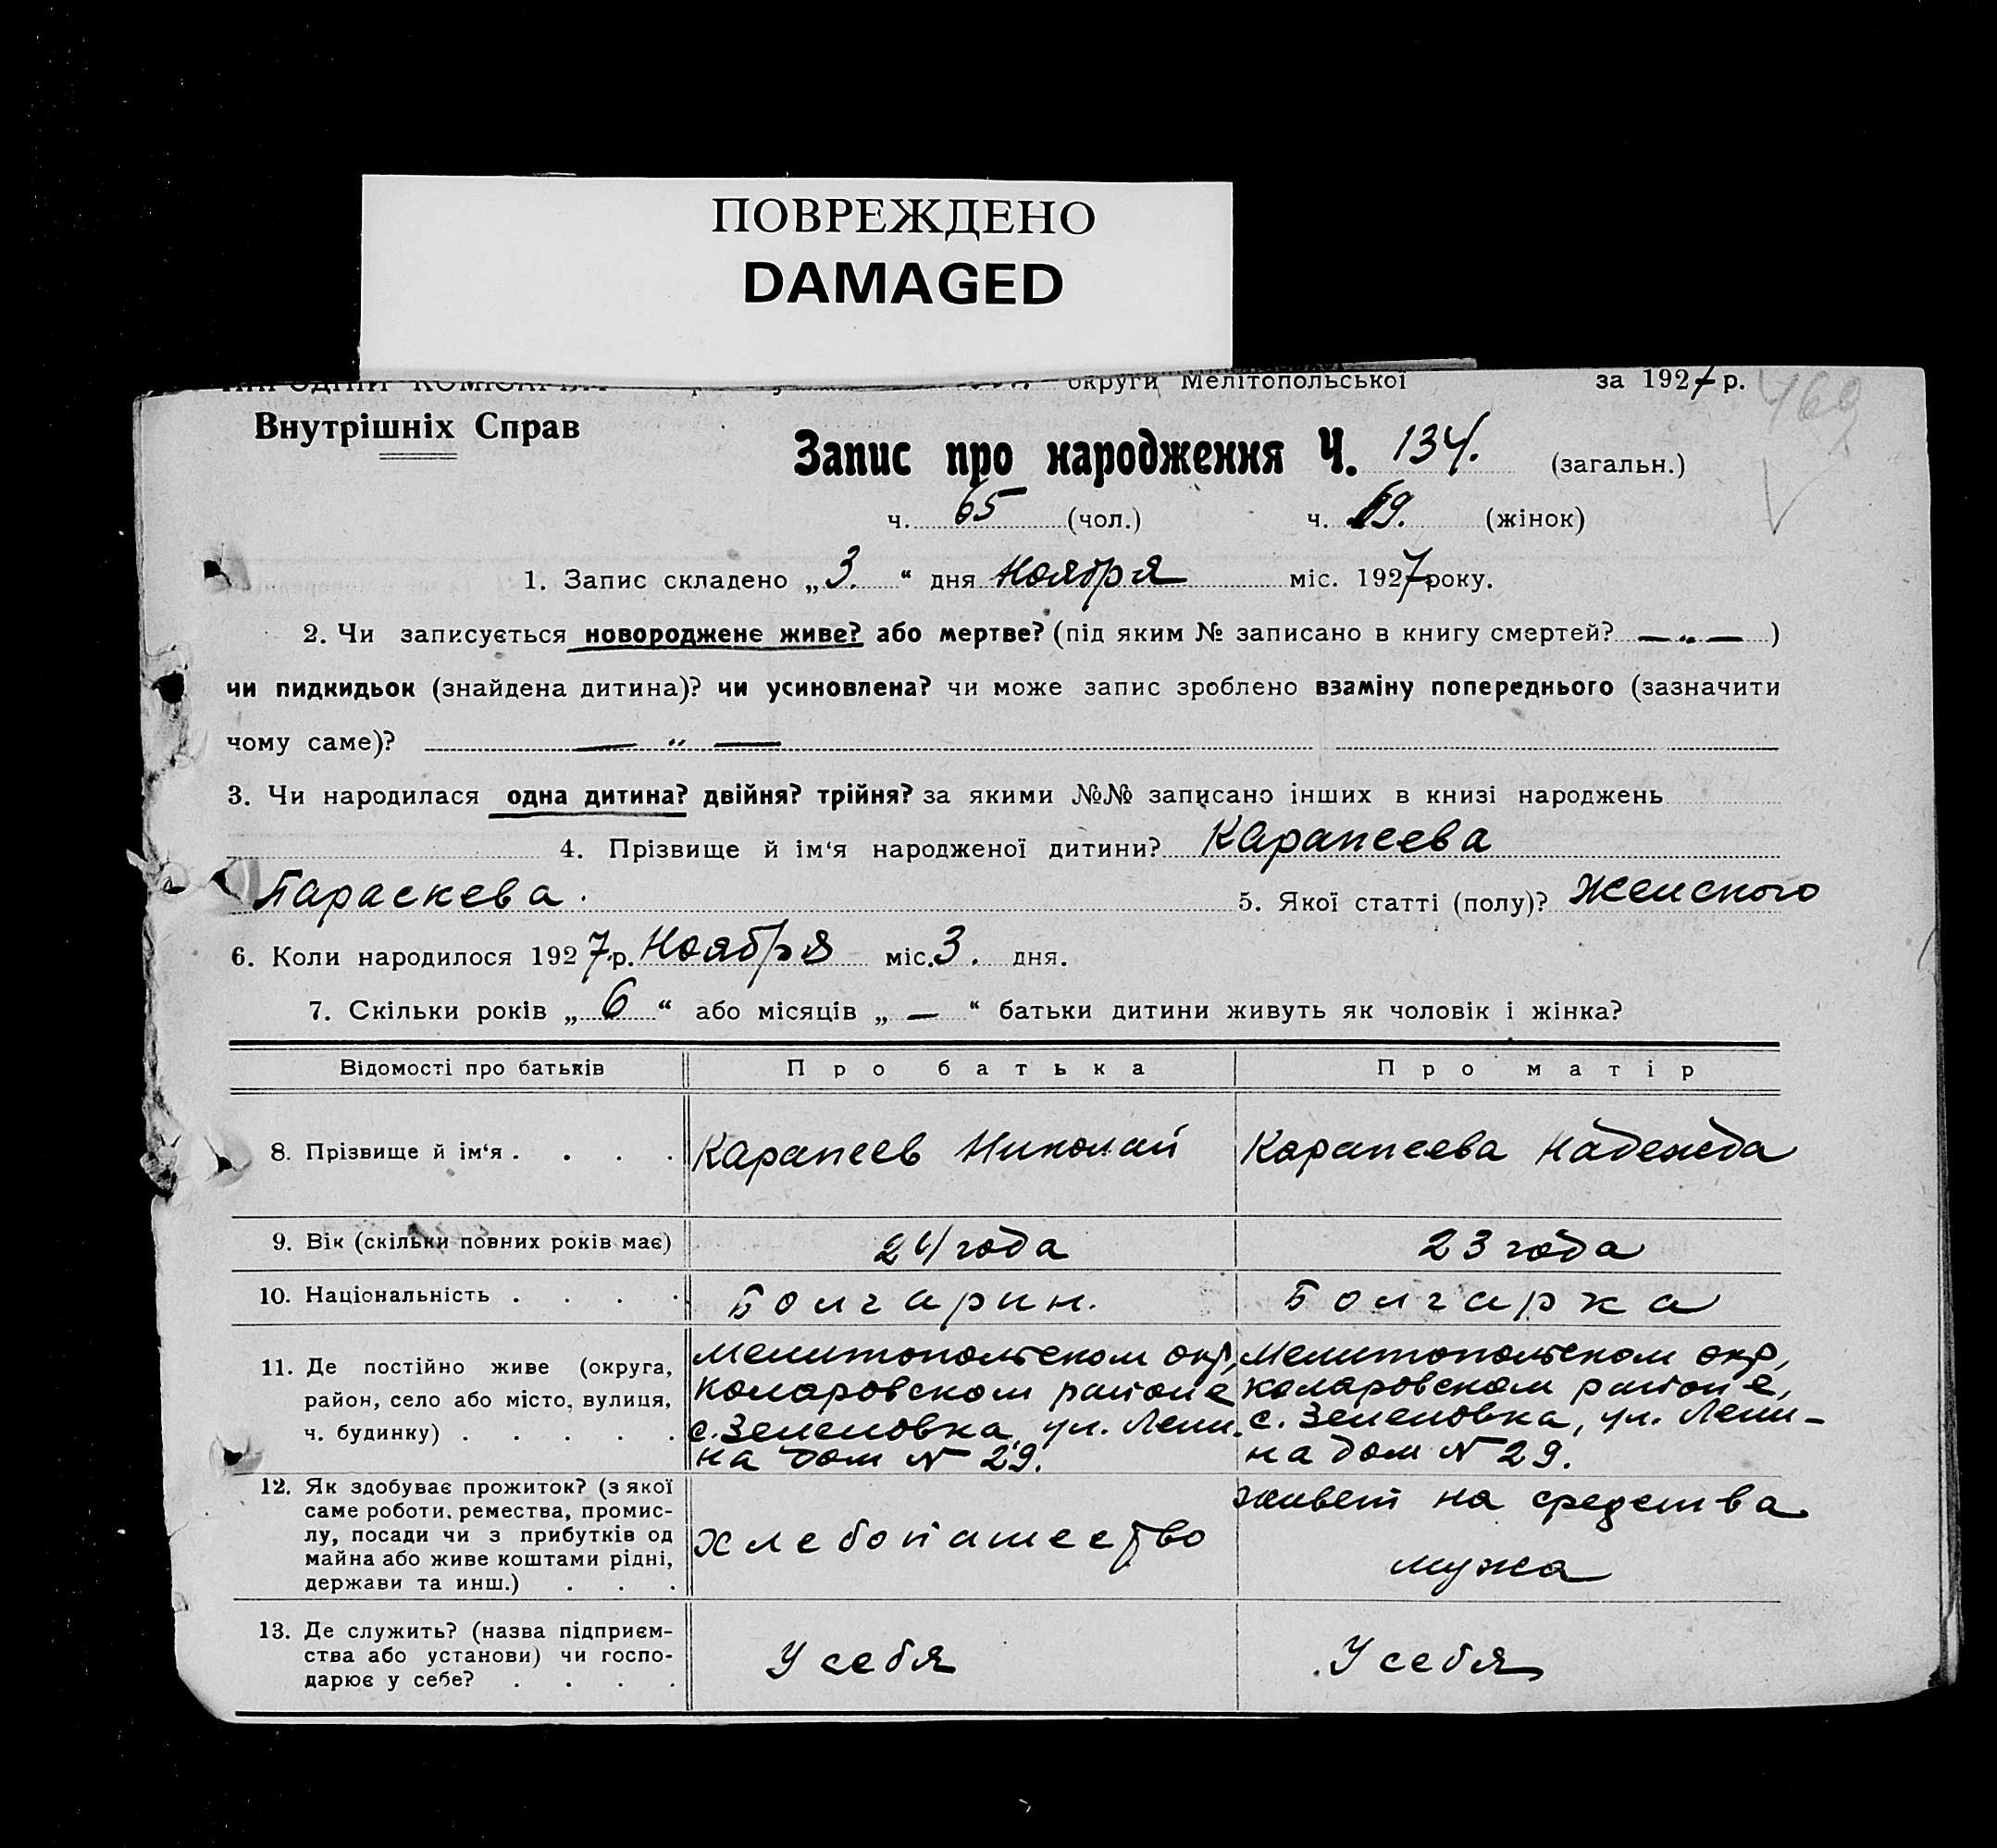 ПОВРЕЖДЕНО
DAMAGED
округи Мелітопольської за 1927 р.
469
Внутрішніх Справ
Запис про народження Ч. 134. (загальн.)
ч. 65 (чол.) ч. 69. (жінок)
1. Запис складено „3.“ дня Ноября міс. 1927 року.
2. Чи записується новороджене живе? або мертве? (під яким № записано в книгу смертей? — „ — )
чи пидкидьок (знайдена дитина)? чи усиновлена? чи може запис зроблено взаміну попереднього (зазначити
чому саме)? — „ —
3. Чи народилася одна дитина? двійня? трійня? за якими №№ записано інших в книзі народжень
4. Прізвище й ім‘я народженої дитини? Карапеева
Параскева. 5. Якої статті (полу)? Женского
6. Коли народилося 1927 р. Ноября міс. 3. дня.
7. Скільки років „6“ або місяців „—“ батьки дитини живуть як чоловік і жінка?
Відомості про батьків Про батька Про матір
8. Прізвище й ім‘я . . . . Карапеев Николай Карапеева Надежда
9. Вік (скільки повних років має) года 23 года
10. Національність . . . . Болгарин. Болгарка
11. Де постійно живе (округа, район, село або місто, вулиця, ч. будинку) . . . . .
Мелитопольском окр, Мелитопольском окр,
Коларовском районе Коларовском районе,
с. Зеленовка, ул. Лени- с. Зеленовка, ул. Лени-
на дом № 29. на дом № 29.
12. Як здобуває прожиток? (з якої
саме роботи, ремества, промис-
лу, посади чи з прибутків од
майна або живе коштами рідні,
держави та инш.) . . .
хлебопашество живет на средства
мужа
13. Де служить? (назва підприєм-
ства або установи) чи госпо-
дарює у себе? . . . .
У себя У себя